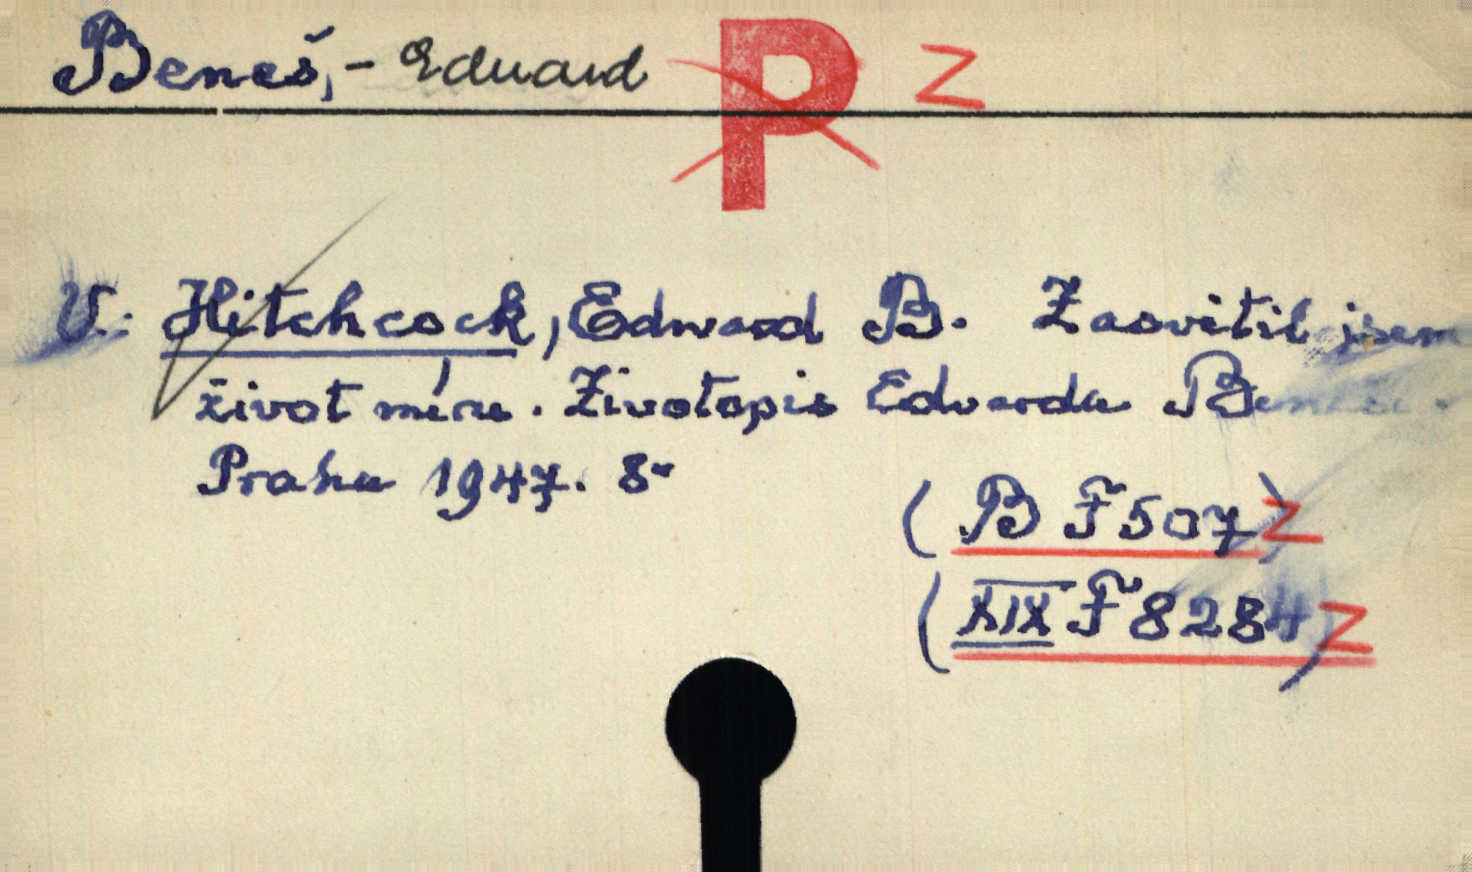 Beneš, - Eduard P Z
V. Hitchcock, Edward B. Zasvětil jsem
život míru. Životopis Edvarda Beneše.
Praha 1947. 8°
(B F 507) Z
(XIX F 8284) Z